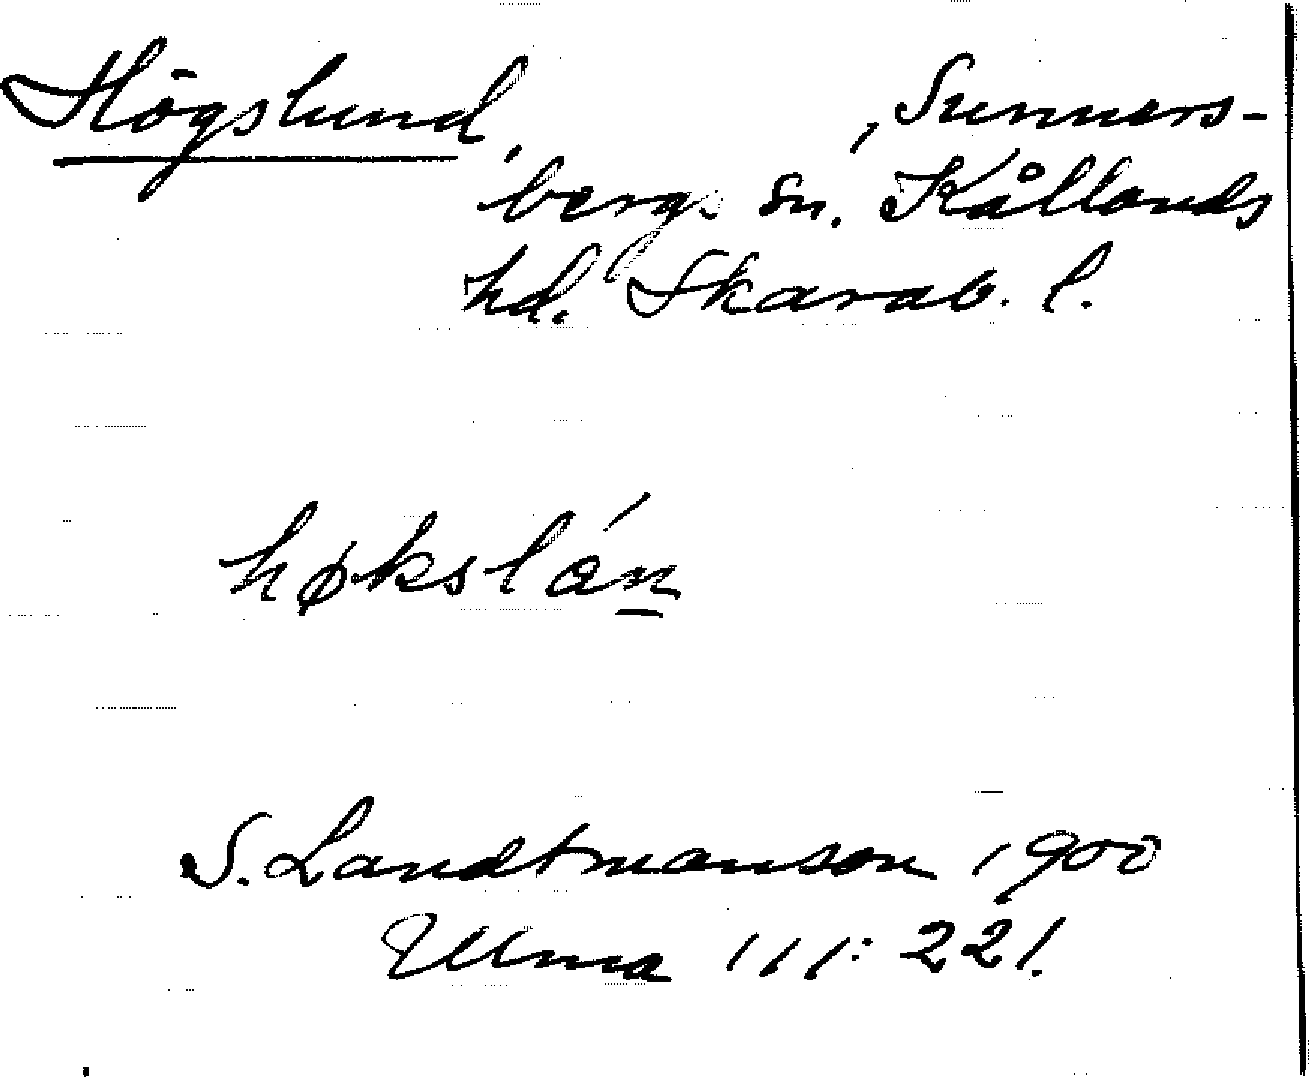 Högslund, , Sunners-
bergs sn. Kållands
hd. Skarab. l.
høkslán
S. Landtmanson 1900
Ulma 111:221.